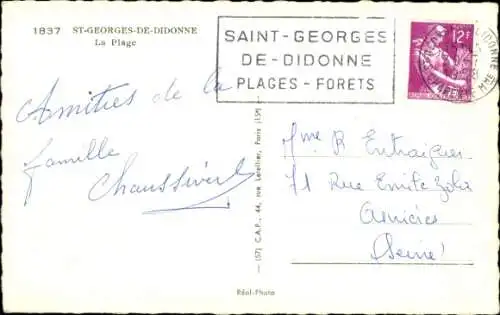 1837 ST-GEORGES-DE-DIDONNE
La Plage
SAINT-GEORGES
DE-DIDONNE
PLAGES - FORETS
12F
Amitiés de la
famille
Mme R Entraigues
71 Rue Emile Zola
(Seine)
(57) C.A.P., 44, rue Letellier, Paris (15e)
Réal-Photo